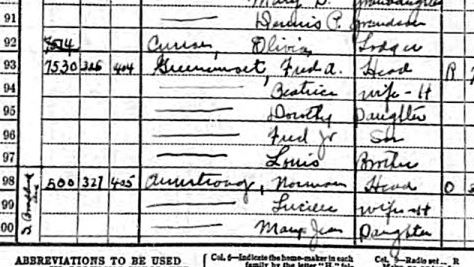 Mary D. Granddaughter
91 Dennis P. Grandson
92 7514 Olivia Lodger
93 7530 326 404 Fred A. Head R
94 Beatrice Wife-H
95 Dorothy Daughter
96 Fred Jr Son
97 Louis Brother
98 500 327 405 Armstrong, Norman Head O
99 Lucille Wife-H
00 Mary Jean Daughter
ABBREVIATIONS TO BE USED
Col. 6—Indicate the home-maker in each
family by the letter "H,"
Col. 9—Radio set... R